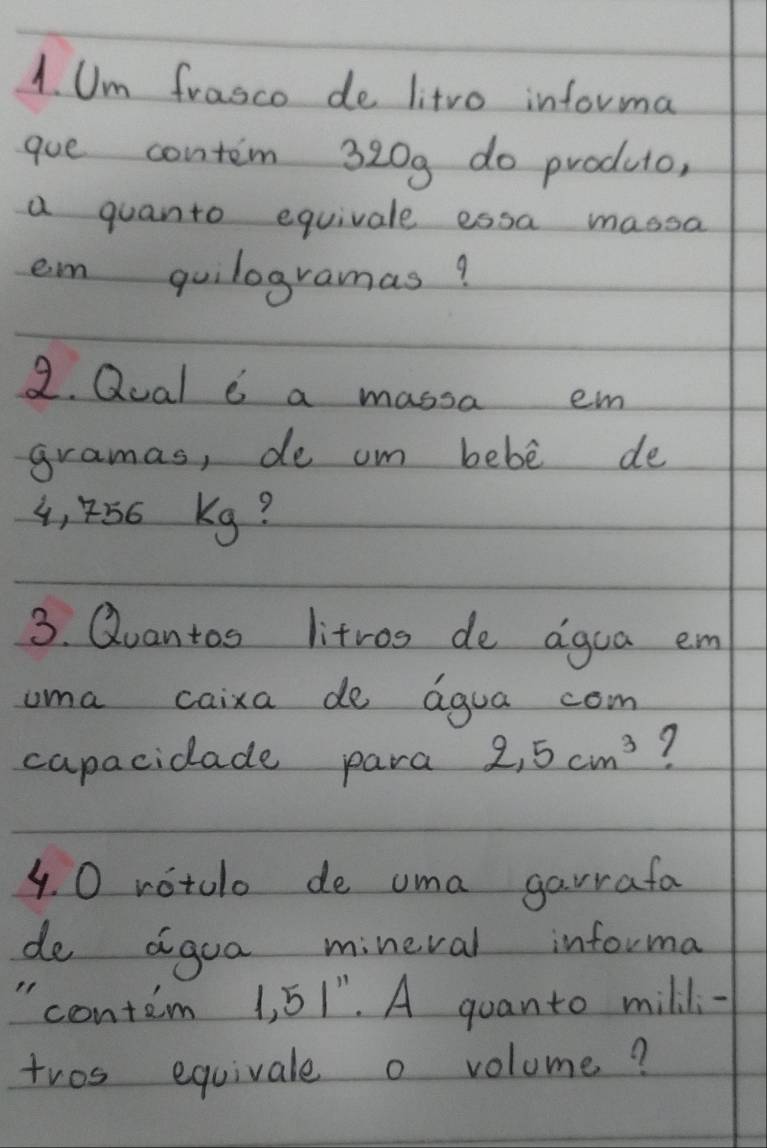 1. Um frasco de litro informa
que contém 320g do produto,
a quanto equivale essa massa
em quilogramas?
2. Qual é a massa em
gramas, de um bebê de
4,756 Kg?
3. Quantos litros de água em
uma caixa de água com
capacidade para 2,5 cm³?
4. O rótulo de uma garrafa
de água mineral informa
"contém 1,5l". A quanto milili-
tros equivale o volume?